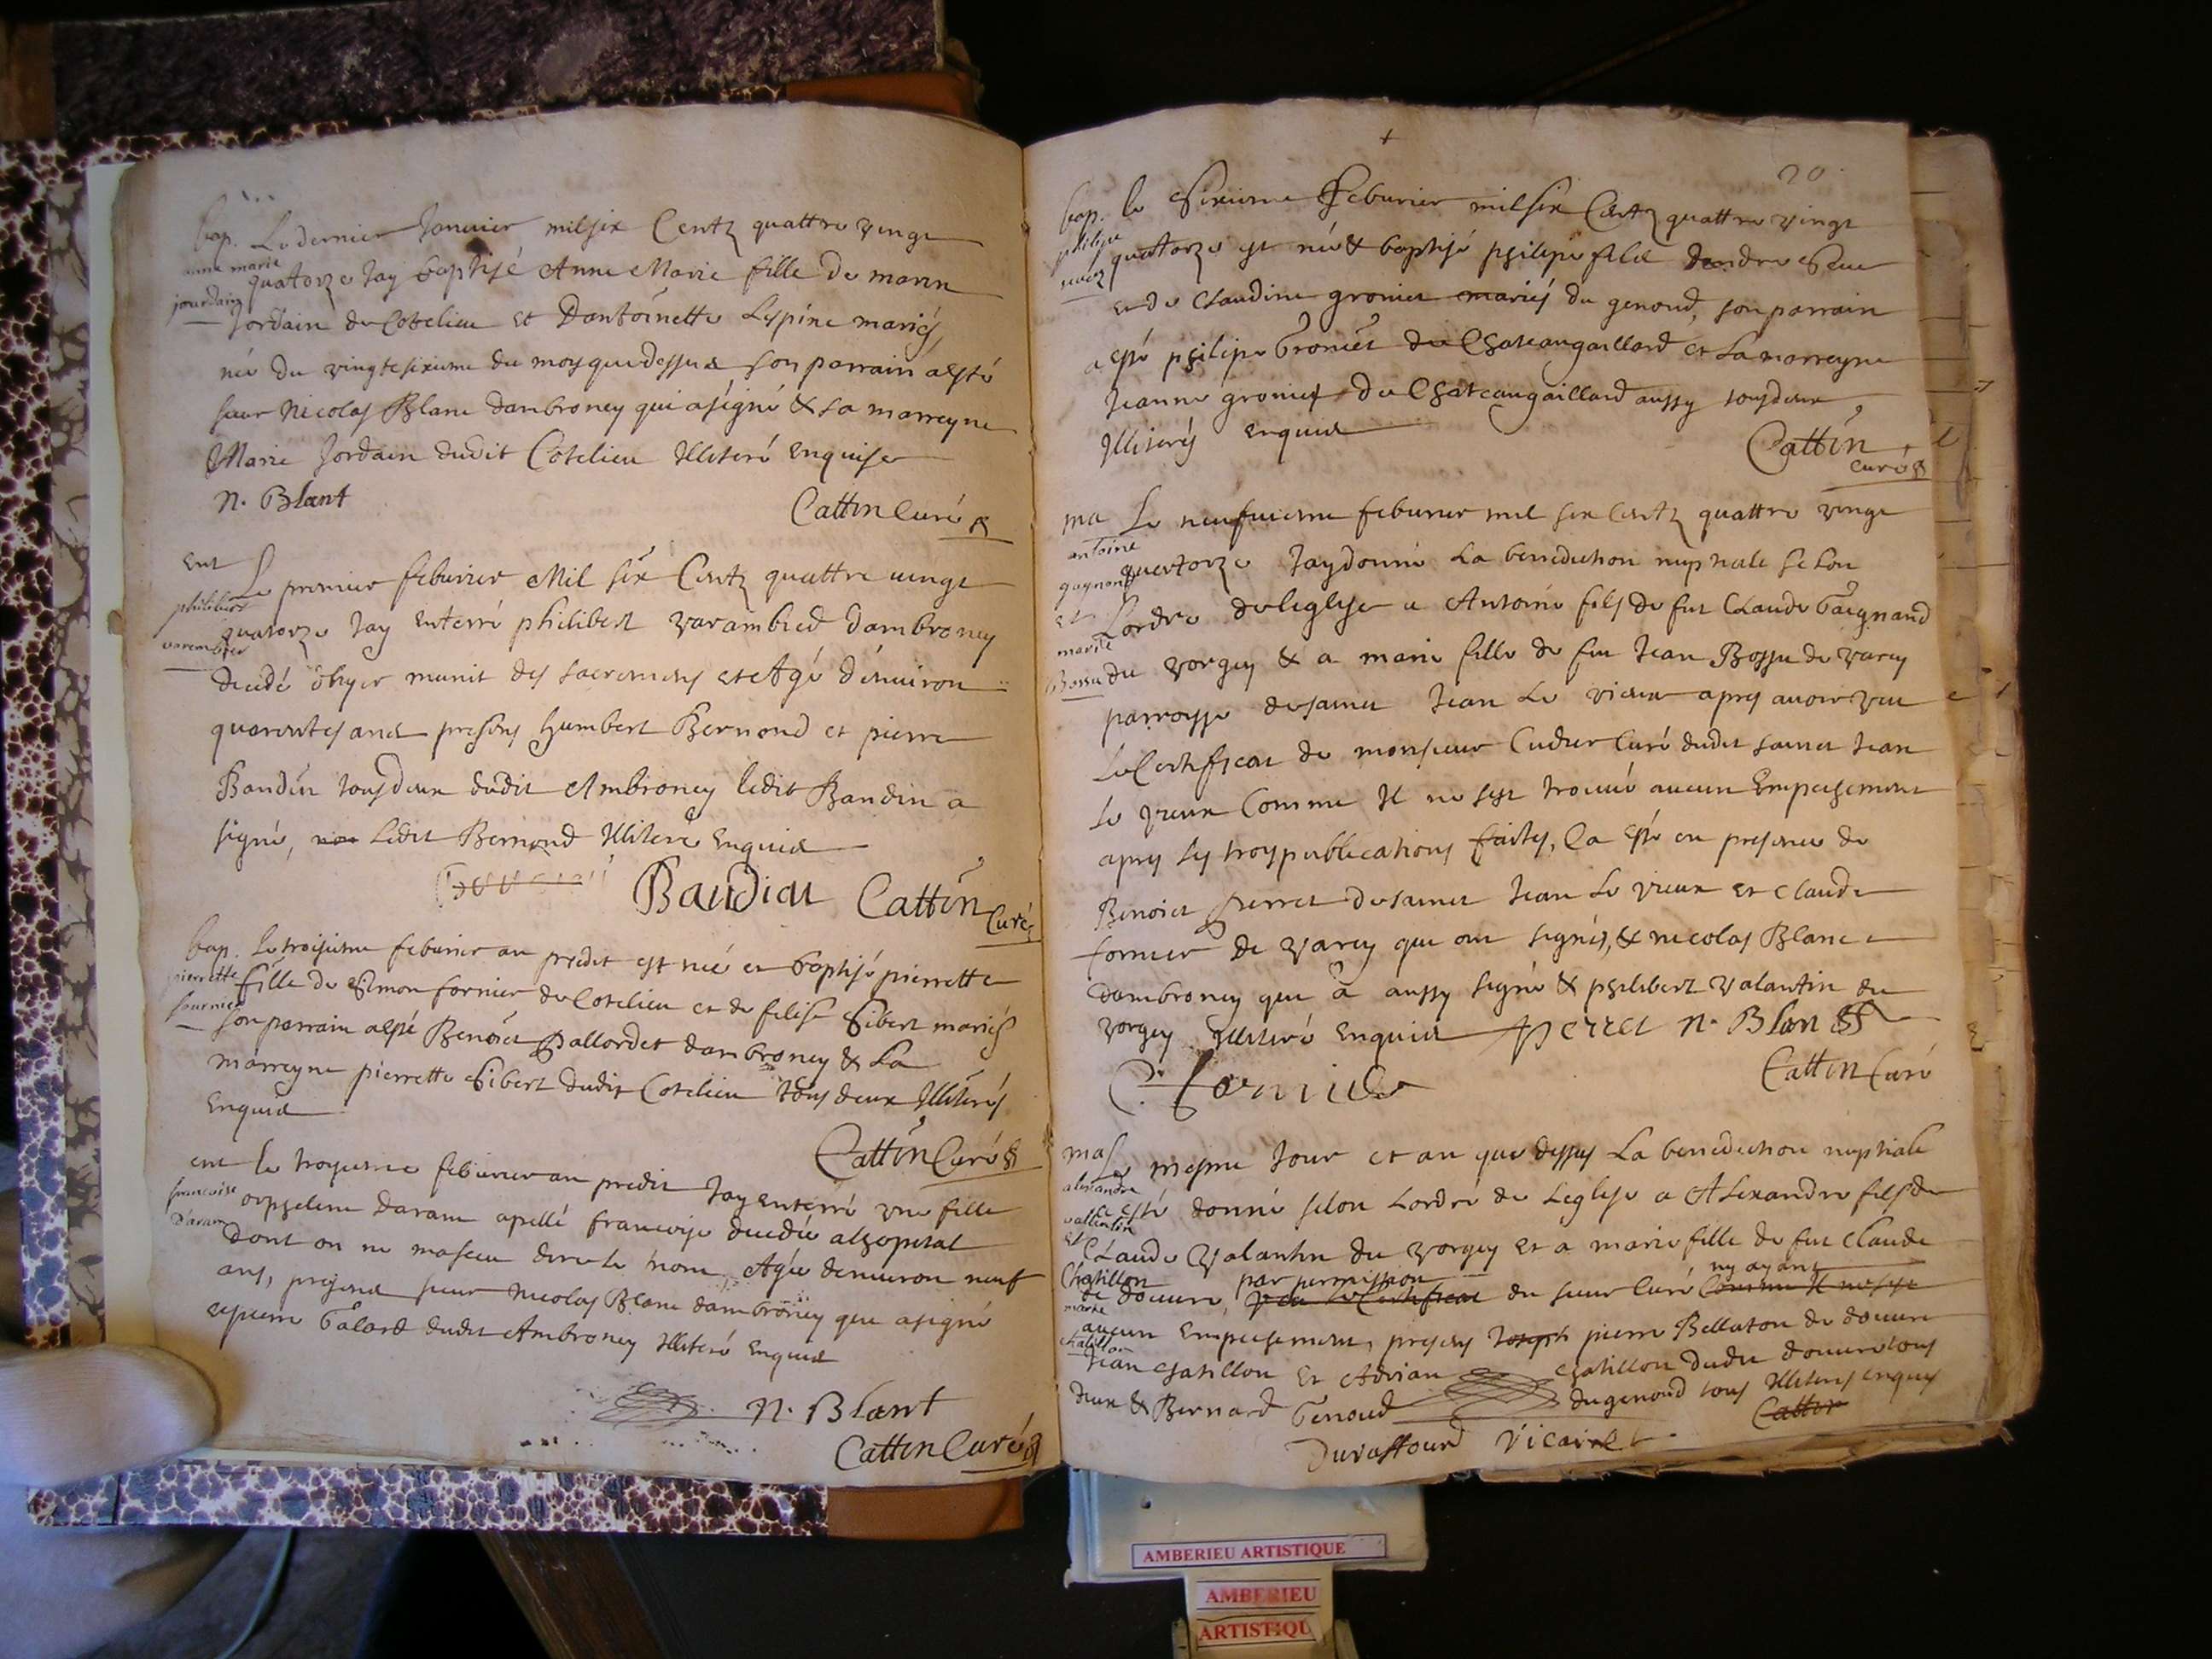 bap.
anne marie
jourdain
Le dernier Januier mil six Centz quattre vingt
quatorze Jay baptisé Anne Marie fille de marin
Jordain de Cotelieu et Dantoinette Lespine mariés
née du vingtesixieme du moys que dessus son parrain a esté
sieur Nicolas Blanc dambroney qui a signé & sa marreyne
Marie Jordain dudit Cotelieu Illiteré enquise
N. Blant Cattin Curé
ent
philibert
varembier
Le premier feburier Mil six Centz quattre uingt
quatorze Jay enterré philibert varambied dambroney
decedé hyer munit des sacremens et Agé denuiron
quarentes ans presens humbert Bernond et pierre
Baudin tous deux dudit Ambroney ledit Baudin a
signé, non ledit Bernond Illiteré enquis
Baudin Cattin Curé
bap.
pierrette
fournier
Le troisieme feburier an predit est née et baptisé pierrette
fille de Simon fornier de Cotelieu et de felise Sibert mariés
son parrain a esté Benoict pallordet dambroney & La
marreyne pierrette Sibert dudit Cotelieu tous deux Illiterés
enquis
Cattin Curé
ent
francoise
D'aram
Le troysieme feburier an predit Jay enterré une fille
orpheline daram apellé francoise decedée alhopital
dont on ne masceu dire le nom, Agée denuiron neuf
ans, presens sieur Nicolas Blanc dambroney qui a signé
et pierre Galard dudit Ambroney Illiteré enquis
N. Blant
Cattin Curé
20
bap.
philipe
Le Sixieme Feburier mil six Centz quattre vingt
quatorze est né & baptisé philipe fils dandre
et de Claudine gronier mariés du genoud, son parrain
a esté philipe Gronier de Chateaugaillard et La marreyne
Jeanne gronier de Chateaugaillard aussy tous deux
Illiterés enquis
Cattin
curé
ma
antoine
gagnand
et
marie
Bossu
Le neufuieme feburier mil six Centz quattre vingt
quatorze Jay donné La benediction nuptiale selon
Lordre de leglise a Antoine fils de fut Claude Gagnand
du vorgey & a marie fille de fut Jean Bossu de varey
parroysse de sainct Jean Le vieux apres auoir veu
Le Certificat de monsieur Cudier Curé dudit sainct Jean
Le vieux Comme Il ne sest trouué aucun Empechement
apres les troys publications faites, Ca esté en presence de
Benoict perret de sainct Jean Le vieux et Claude
fornier de varey qui ont signés, & nicolas Blanc
dambroney qui a aussy signé & philibert valantin du
vorgey Illiteré enquis perret N. Blan
C. fornier Cattin Curé
ma
alexandre
vallentin
et
marie
Chatillon
Le mesme Jour et an que dessus La benediction nuptiale
a esté donné selon Lordre de Leglise a Alexandre fils de
Claude Valantin du vorgey et a marie fille de fut Claude
Chatillon
par permission ny ayant
de douure, veu Le Certificat du sieur Curé Comme Il ne sest
aucun Empechement, presens Joseph pierre Bellaton de douure
Jean chatillon et Adrian chatillon dudit douure tous
deux & Bernard Genoud du genoud tous Illiterés enquis
Cattin
Duvassourd vicaire
AMBERIEU ARTISTIQUE
AMBERIEU
ARTISTIQU